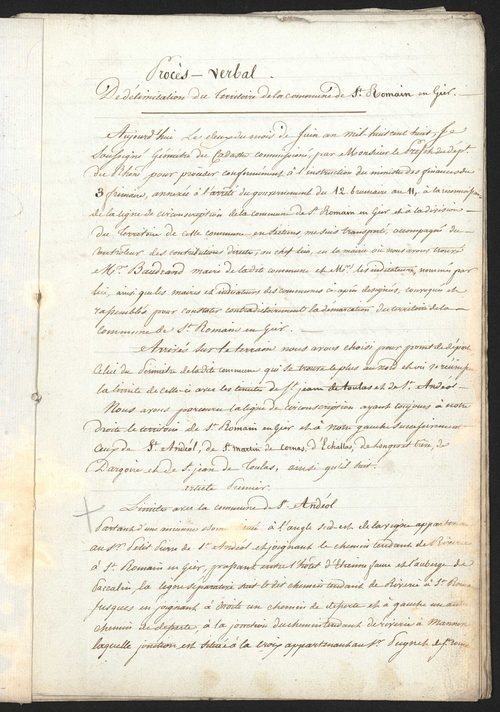 Procès – verbal.
De délimitation du territoire de la commune de St. Romain en Gier.
Aujourd'hui le deux du mois de Juin an mil huit cent huit; Je
soussigné Géomètre du Cadastre commissionné, par Monsieur le Préfet du dépt
du Rhône pour procéder conformément à l'instruction du ministre des finances du
3 frimaire, annexée à l'arrêté du gouvernement du 12 brumaire an 11, à la reconnaissance
de la ligne de circonscription de la commune de St Romain en Gier et à la division
du territoire de cette commune en sections me suis transporté, accompagné du
Contrôleur des contributions directes, au chef lieu, en la mairie où nous avons trouvé
Mr. Baudrand maire de la dte commune et Mrs. les indicateurs, nommés par
lui, ainsi que les maires et indicateurs des communes ci-après désignés, convoqués et
rassemblés pour constater contradictoirement la démarcation du territoire de la
commune de St Romain en Gier.
Arrivés sur le terrain nous avons choisi pour point de départ
celui du périmètre de la dte commune qui se trouve le plus au nord et où se réunit
la limite de celle-ci avec les territoires de St jean de toulas et de St Andéol
Nous avons parcouru la ligne de circonscription ayant toujours à notre
droite le territoire de St Romain en Gier et à notre gauche successivement
ceux de St Andéol, de St martin de Cornas, d'Echallas, de
Dargoire et de St jean de Toulas, ainsi qu'il suit.
article Premier.
Limite avec la commune de St Andéol
Partant d'un ancienne à l'angle sud-est de la vigne appartenant
au Sr Petit Pierre de St Andéol et joignant le chemin tendant de Riverie
à St Romain en Gier, passant entre l'hôtel d'Etienne faure et l'auberge de
la ligne séparative suit le dit chemin tendant de Riverie à St Romain
jusques en joignant à droite un chemin de desserte et à gauche un autre
chemin de desserte, à la jonction du chemin tendant de riverie à
laquelle jonction est située à la croix appartenant au Sr Peyret de St